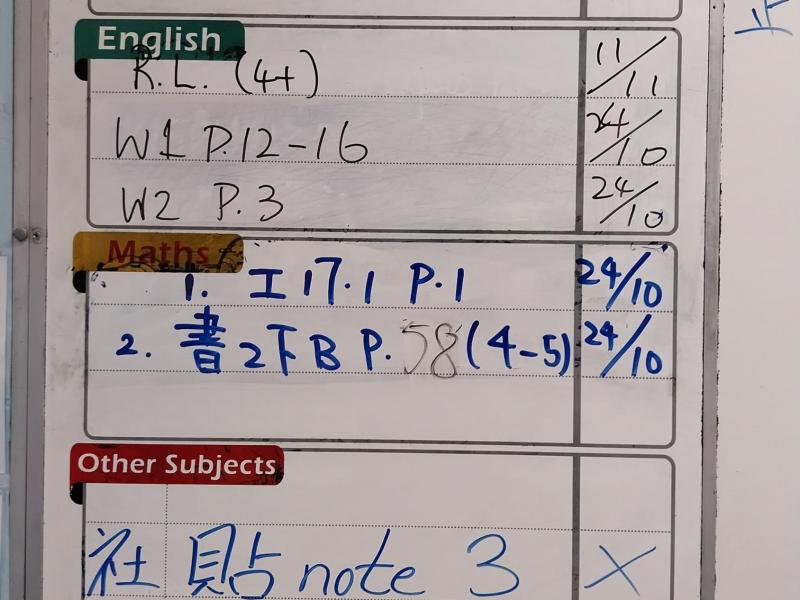 English
R.L. (4+) 11/11
W1 P.12-16 24/10
W2 P.3 24/10
Maths
1. 工17.1 P.1 24/10
2. 書2下B P.58(4-5) 24/10
Other Subjects
社 貼note 3 X